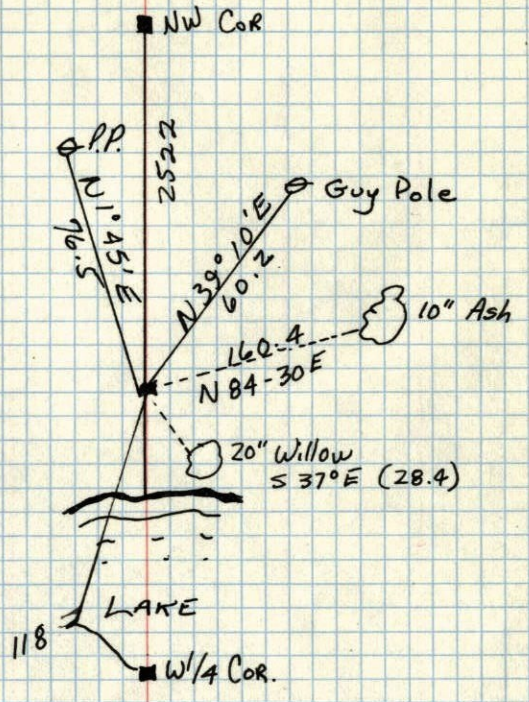 NW COR
P.P.
2522
N 1° 45' E
76.5
Guy Pole
N 39° 10' E
60.2
10" Ash
160.4
N 84-30 E
20" Willow
S 37° E (28.4)
LAKE
118
W 1/4 COR.